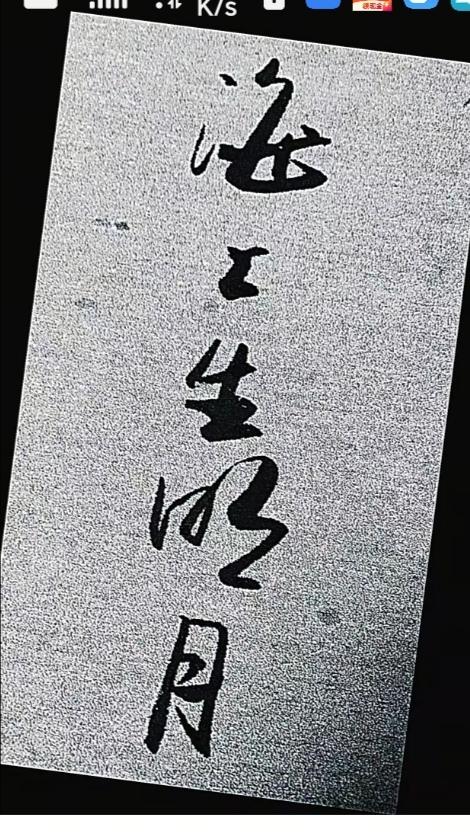 K/s
海上生明月